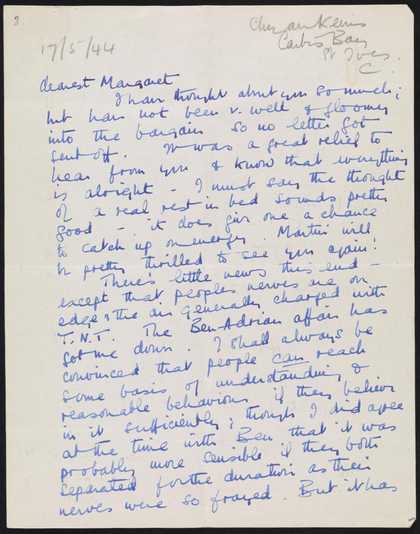 3
Chy an Kerris
Carbis Bay
St Ives.
C.
17/5/44
dearest Margaret
I have thought about you so much;
but have not been v. well & gloomy
into the bargain so no letter got
sent off. It was a great relief to
hear from you & know that everything
is alright – I must say the thought
of a real rest in bed sounds pretty
good – it does give one a chance
to catch up on energy. Martin will
be pretty thrilled to see you again!
There's little news this end –
except that peoples nerves are on
edge & the air generally charged with
T.N.T. The Ben–Adrian affair has
got me down. I shall always be
convinced that people can reach
some basis of understanding &
reasonable behaviour if they believe
in it sufficiently; though I did agree
at the time with Ben that it was
probably more sensible if they both
separated for the duration as their
nerves were so frayed. But it has